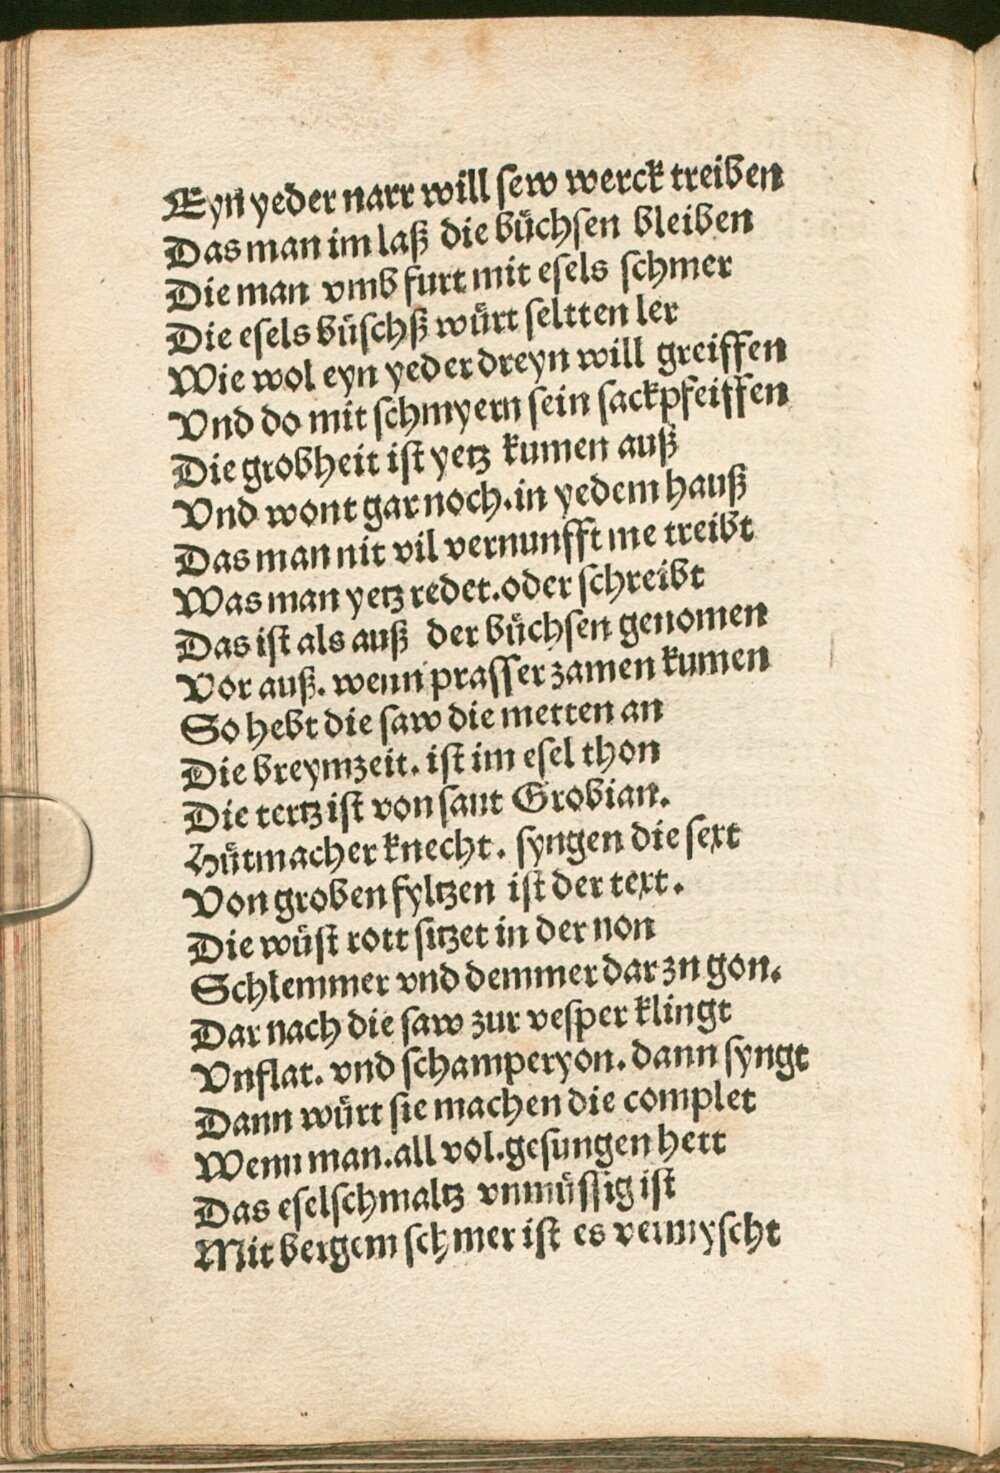 Eyn yeder narr will sew werck treiben
Das man im laß die büchsen bleiben
Die man vmb furt mit esels schmer
Die esels büschß würt seltten ler
Wie wol eyn yeder dreyn will greiffen
Vnd do mit schmyern sein sackpfeiffen
Die grobheit ist yetz kumen auß
Vnd wont gar noch.in yedem hauß
Das man nit vil vernunfft me treibt
Was man yetz redet.oder schreibt
Das ist als auß der büchsen genomen
Vor auß. wenn prasser zamen kumen
So hebt die saw die metten an
Die breymzeit. ist im esel thon
Die tertz ist von sant Grobian.
Hütmacher knecht. syngen die sext
Von groben fyltzen ist der text.
Die wüst rott sitzet in der non
Schlemmer vnd demmer dar zn gon.
Dar nach die saw zur vesper klingt
Vnflat. vnd schamperyon. dann syngt
Dann würt sie machen die complet
Wenn man.all vol.gesungen hett
Das eselschmaltz vnmüssig ist
Mit bergem schmer ist es vermyscht